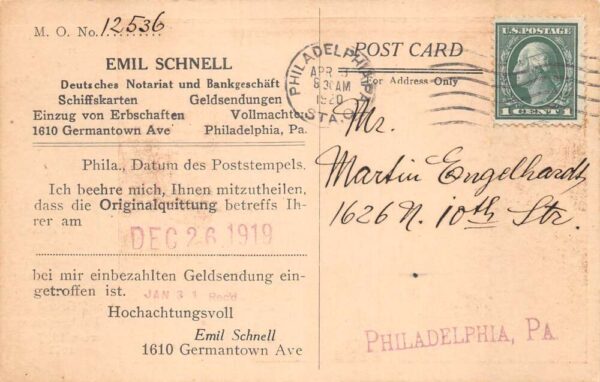 M. O. No. 12536
EMIL SCHNELL
Deutsches Notariat und Bankgeschäft
Schiffskarten Geldsendungen
Einzug von Erbschaften Vollmachten
1610 Germantown Ave Philadelphia, Pa.
Phila., Datum des Poststempels.
Ich beehre mich, Ihnen mitzutheilen,
dass die Originalquittung betreffs Ih-
rer am
DEC 26 1919
bei mir einbezahlten Geldsendung ein-
getroffen ist.
JAN 31 Rec'd
Hochachtungsvoll
Emil Schnell
1610 Germantown Ave
POST CARD
For Address Only
PHILADELPHIA, PA
APR 3
8 30 AM
1920
STA. O
U.S. POSTAGE
1 CENT 1
Mr.
Martin Engelhardt
1626 N. 10th Str.
PHILADELPHIA, PA